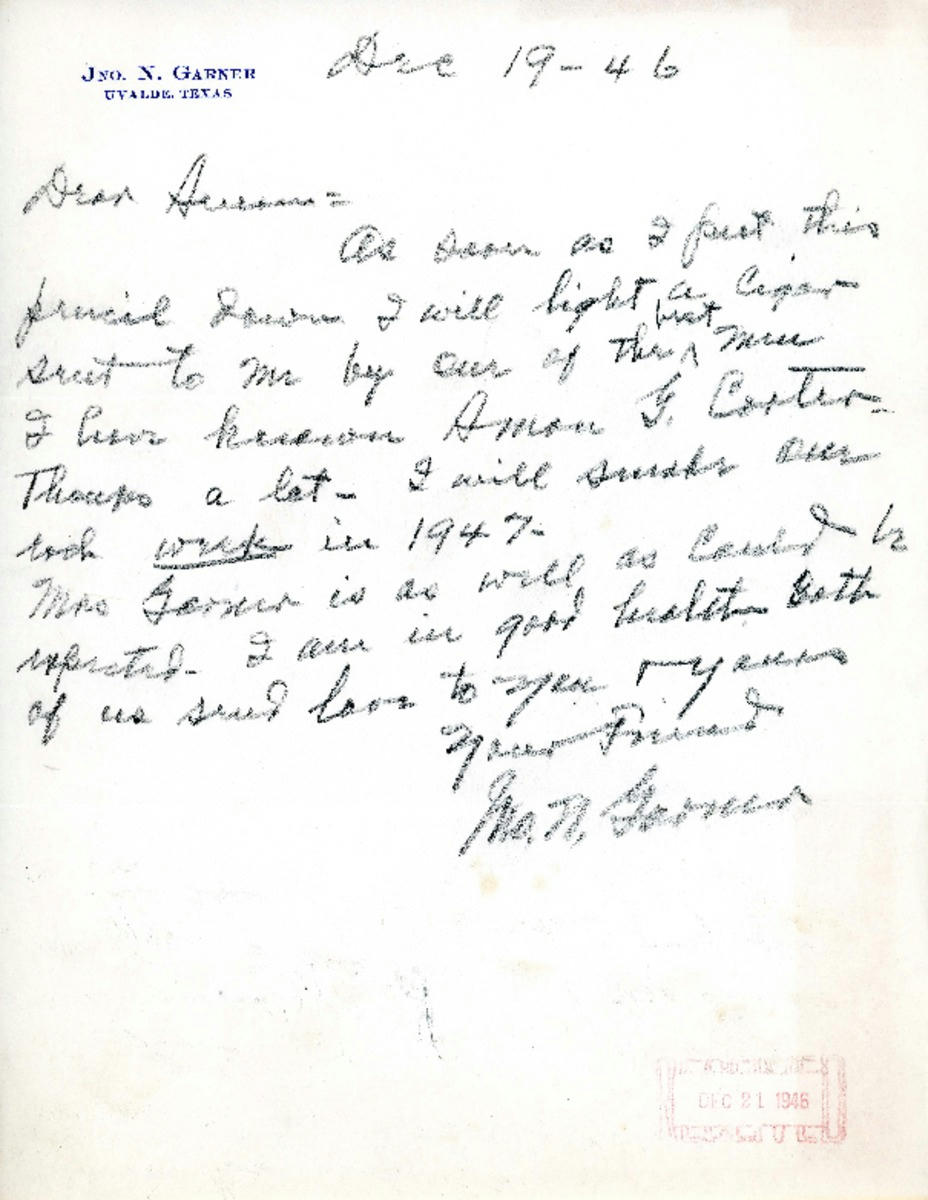 JNO. N. GARNER
UVALDE, TEXAS
Dec 19-46
Dear Amon=
As soon as I put this
pencil down I will light a Cigar
sent to me by one of the best men
I have known Amon G. Carter-
Thanks a lot- I will smoke one
each week in 1947-
Mrs Garner is as well as could be
expected- I am in good health Both
of us send love to you & yours
Your Friend
Jno. N. Garner
DEC 21 1946